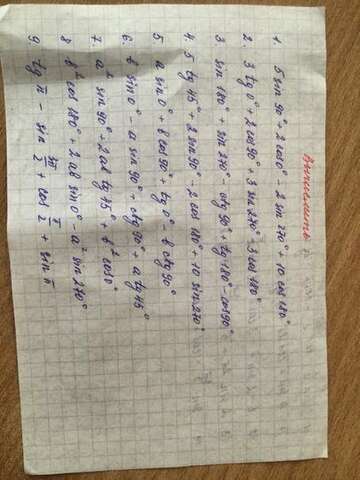 Вычислить
1. 5 sin 90° + 2 cos 0° - 2 sin 270° + 10 cos 180°
2. 3 tg 0° + 2 cos 90° + 3 sin 270° - 3 cos 180°
3. sin 180° + sin 270° - ctg 90° + tg 180° - cos 90°
4. 5 tg 45° + 2 sin 90° - 2 cos 180° + 10 sin 270°
5. a sin 0° + b cos 90° + tg 0° - b ctg 90°
6. b sin 0° - a sin 90° + ctg 90° + a tg 45°
7. a² sin 90° + 2ab tg 45° + b² cos 0°
8. b² cos 180° + 2ab sin 0° - a² sin 270°
9. tg π - sin 3π/2 + cos π/2 + sin π